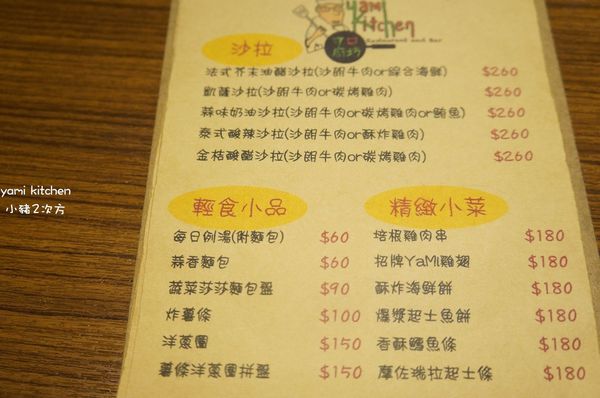 yami
Kitchen
Restaurant and Bar
丫口
廚坊
沙拉
法式芥末油醋沙拉(沙朗牛肉or綜合海鮮) $260
凱薩沙拉(沙朗牛肉or碳烤雞肉) $260
蒜味奶油沙拉(沙朗牛肉or碳烤雞肉or鮪魚) $260
泰式酸辣沙拉(沙朗牛肉or酥炸雞肉) $260
金桔酸醋沙拉(沙朗牛肉or碳烤雞肉) $260
輕食小品
每日例湯(附麵包) $60
蒜香麵包 $60
蔬菜莎莎麵包盤 $90
炸薯條 $100
洋蔥圈 $150
薯條洋蔥圈拼盤 $150
精緻小菜
培根雞肉串 $180
招牌YaMi雞翅 $180
酥炸海鮮餅 $180
爆漿起士魚餅 $180
香酥鱈魚條 $180
摩佐瑞拉起士條 $180
yami kitchen
小豬2次方